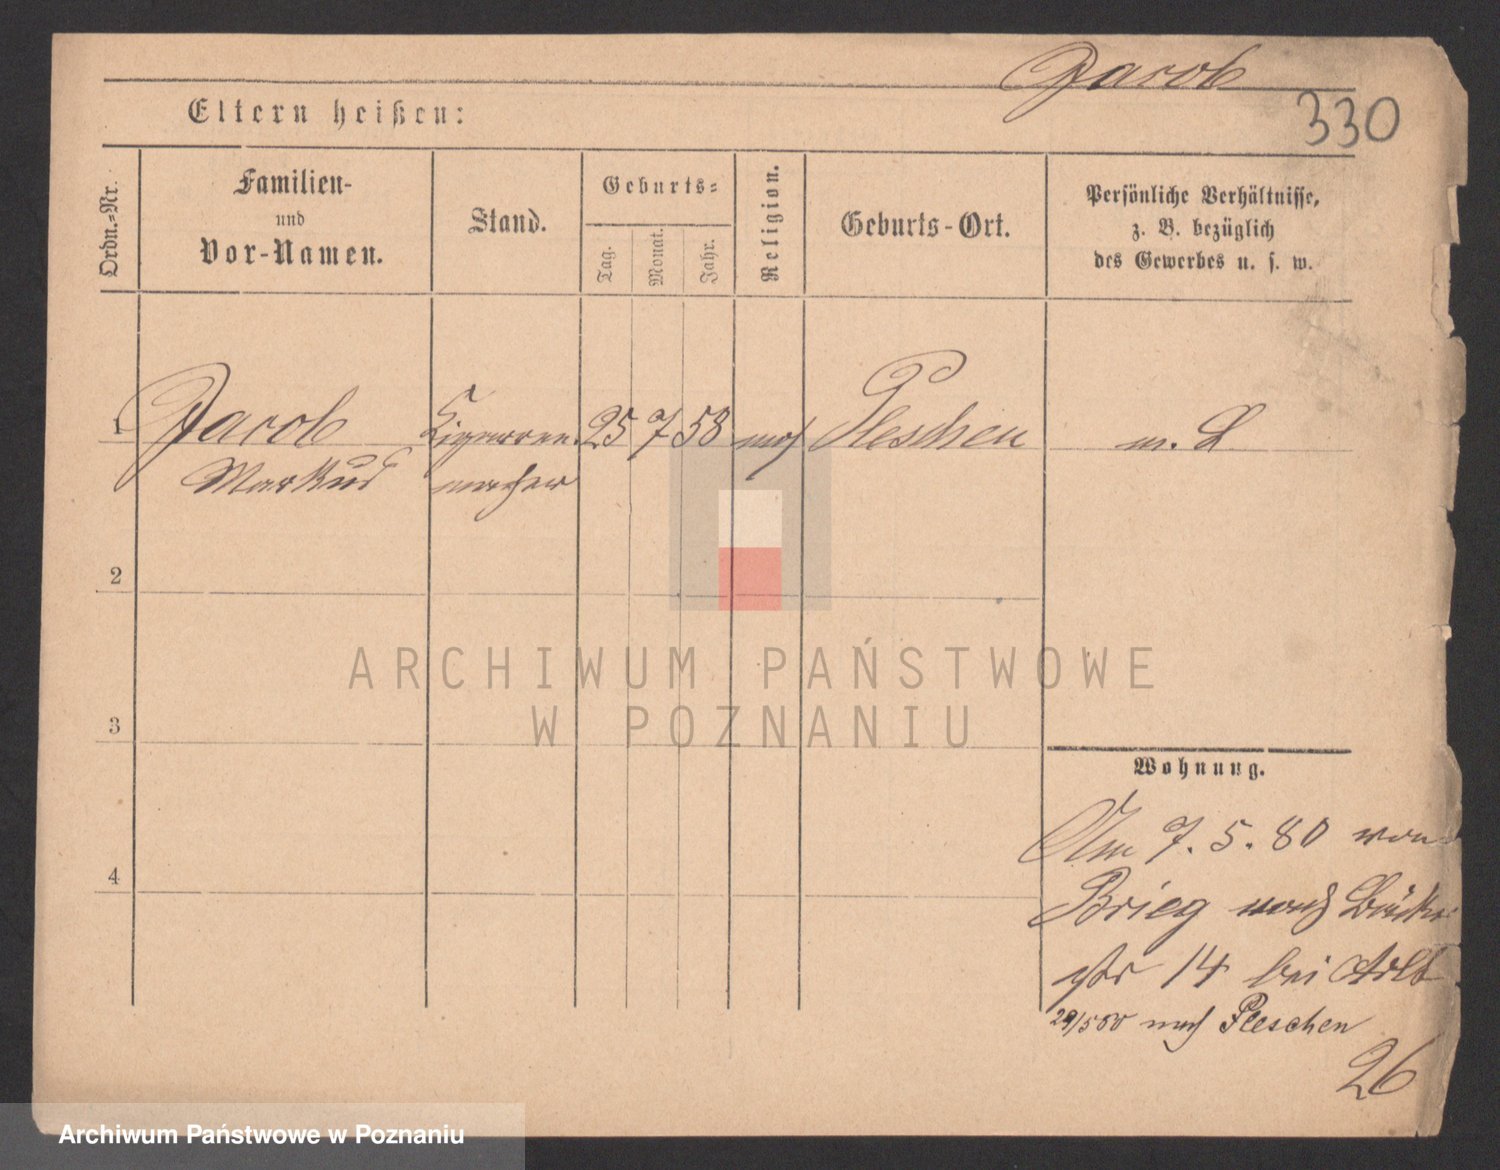 Jacob
330
Eltern heißen:
Ordn.-Nr.
Familien-
und
Vor-Namen.
Stand.
Geburts-
Tag.
Monat.
Jahr.
Religion.
Geburts-Ort.
Persönliche Verhältnisse,
z. B. bezüglich
des Gewerbes u. s. w.
1 Jacob Cigarren 25 7 58 mos Pleschen m. L
Markus macher
2
ARCHIWUM PAŃSTWOWE
W POZNANIU
3
Wohnung.
Am 7. 5. 80 von
4
Brieg nach
14 bei
nach Pleschen
26
Archiwum Państwowe w Poznaniu